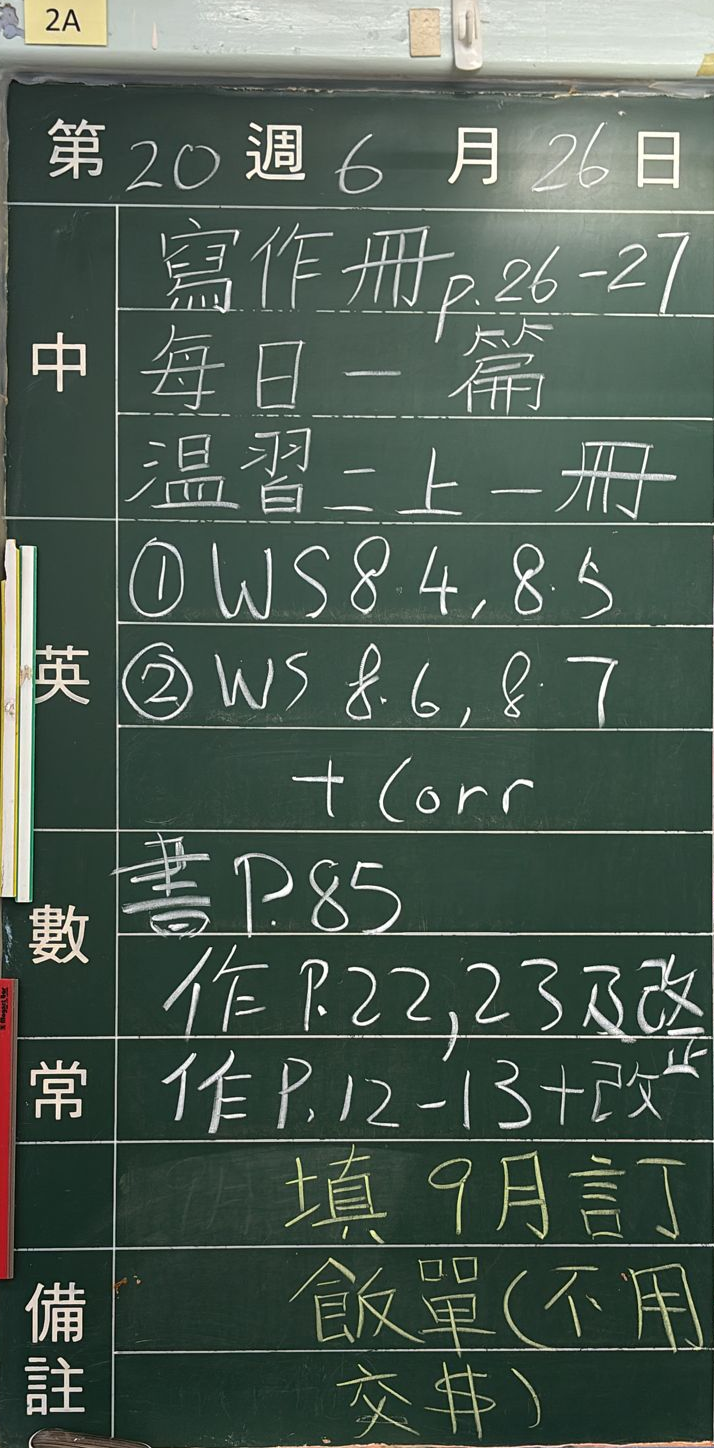 2A
第 20 週 6 月 26 日
中
寫作冊 p.26-27
每日一篇
温習二上一冊
英
① WS 8.4, 8.5
② WS 8.6, 8.7
+ Corr
數
書 P.85
作 P.22,23 及改正
常
作 P.12-13+改
填 9月訂
備註
飯單(不用
交$)